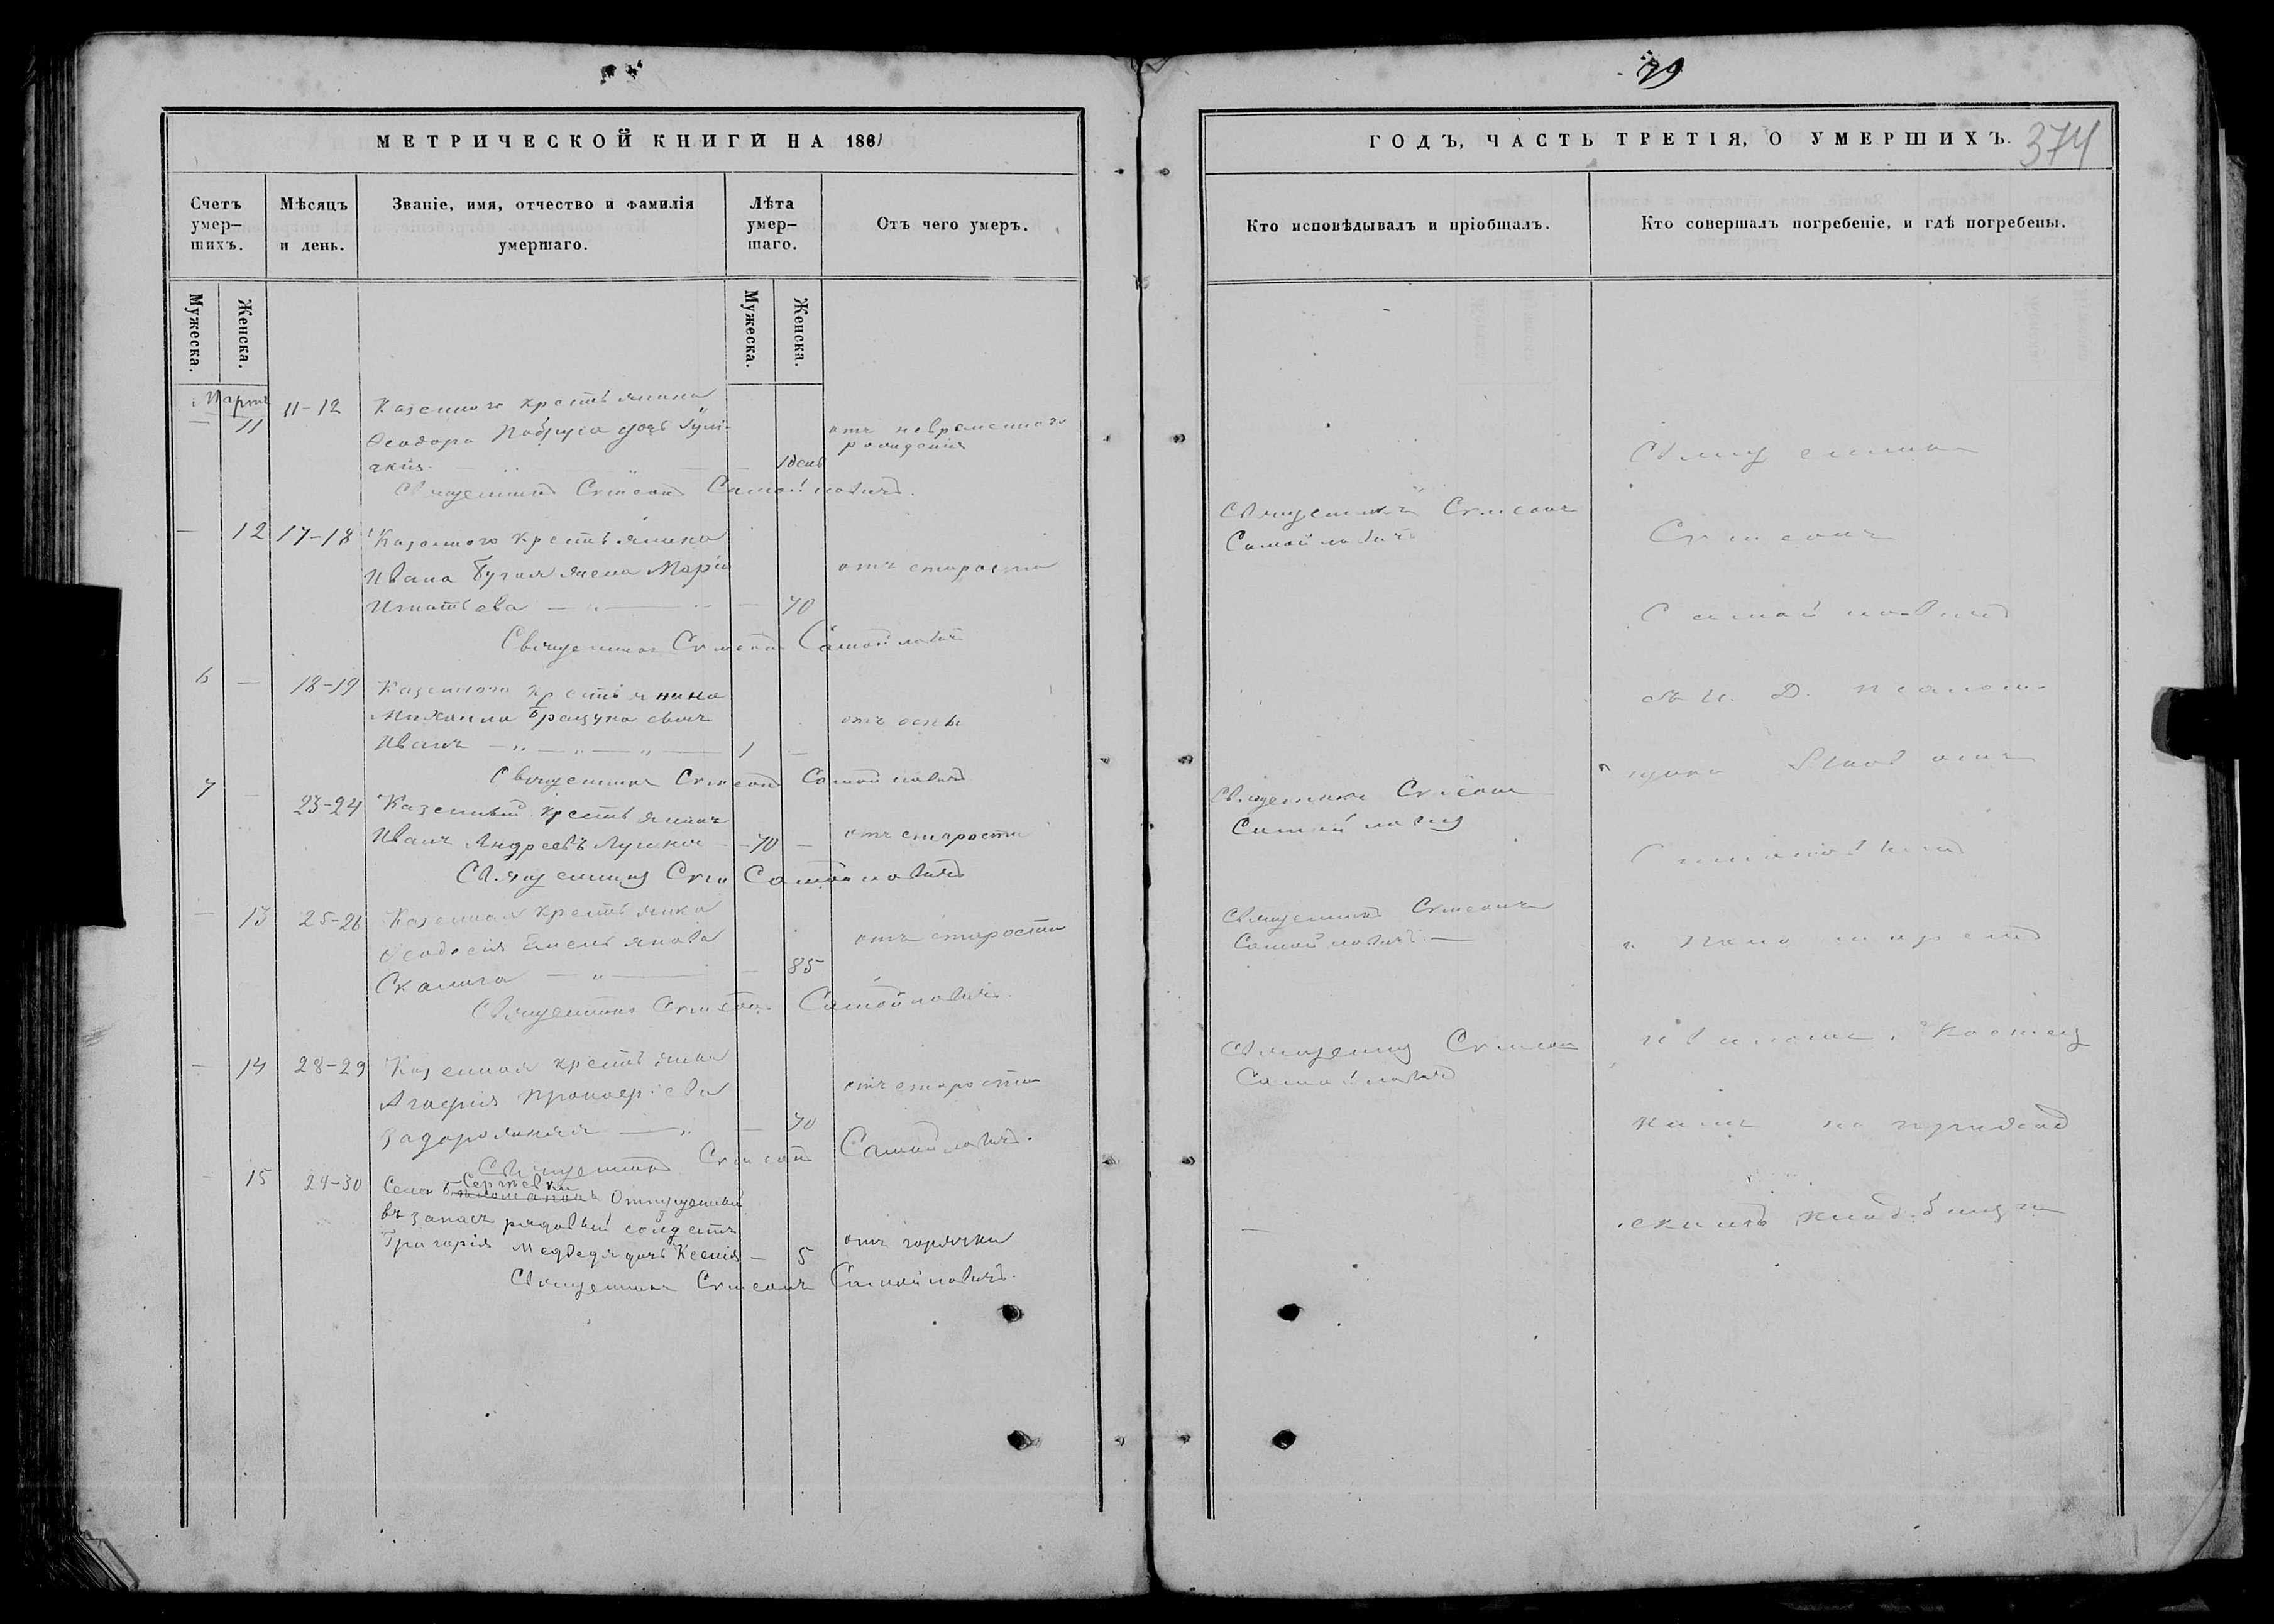 79
374
МЕТРИЧЕСКОЙ КНИГИ НА 1861
ГОДЪ, ЧАСТЬ ТРЕТІЯ, О УМЕРШИХЪ.
Счетъ умер-шихъ.
Мѣсяцъ и день.
Званіе, имя, отчество и фамилія умершаго.
Лѣта умер-шаго.
Отъ чего умеръ.
Кто исповѣдывалъ и пріобщалъ.
Кто совершалъ погребеніе, и гдѣ погребены.
Мужеска.
Женска.
Мужеска.
Женска.
Мартъ
— 11 11-12 Казенного крестьянина
Ѳеодора дочь Гули-
кия 1 день
отъ невременного
рождения
Священникъ Симеонъ Самойловичъ.
— 12 17-18 Казенного крестьянина
Ивана Бугая жена Марія
Игнатьева — 70
отъ старости
Священникъ Симеонъ Самойловичъ
6 — 18-19 Казенного крестьянина
Михаила сынъ
Иванъ 1 —
отъ оспы
Священникъ Симеонъ Самойловичъ
7 — 23-24 Казенный крестьянинъ
Иванъ Андреевъ — 70 —
отъ старости
Священникъ Сим Самойловичъ
— 13 25-26 Казенная крестьянка
Ѳеодосія Емельянова
Скалига — 85
отъ старости
Священникъ Симеонъ Самойловичъ.
— 14 28-29 Казенная крестьянка
Агафія
Задорожняя — 70
отъ старости
Священникъ Симеонъ Самойловичъ.
— 15 24-30 Села Сергѣевки Отпущенный
въ запасъ рядовый солдатъ
Григорія Медведя дочь Ксенія — 5
отъ горячки
Священникъ Симеонъ Самойловичъ.
Священникъ Симеонъ
Самойловичъ
Священникъ Симеонъ
Самойловичъ
Священникъ Симеонъ
Самойловичъ —
Священникъ Симеонъ
Самойловичъ
—
Священникъ
Симеонъ
Самойловичъ
съ И. Д. псалом-
щика
и понамаремъ
на приход
скомъ кладбищѣ